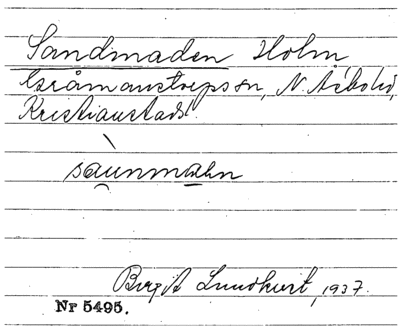 Sandmaden Holm
Gråmanstorps sn, N. Åsbo hd,
Kristianstads l.
sàunmahn
Birgit Lundkvist, 1937.
Nr 5495.